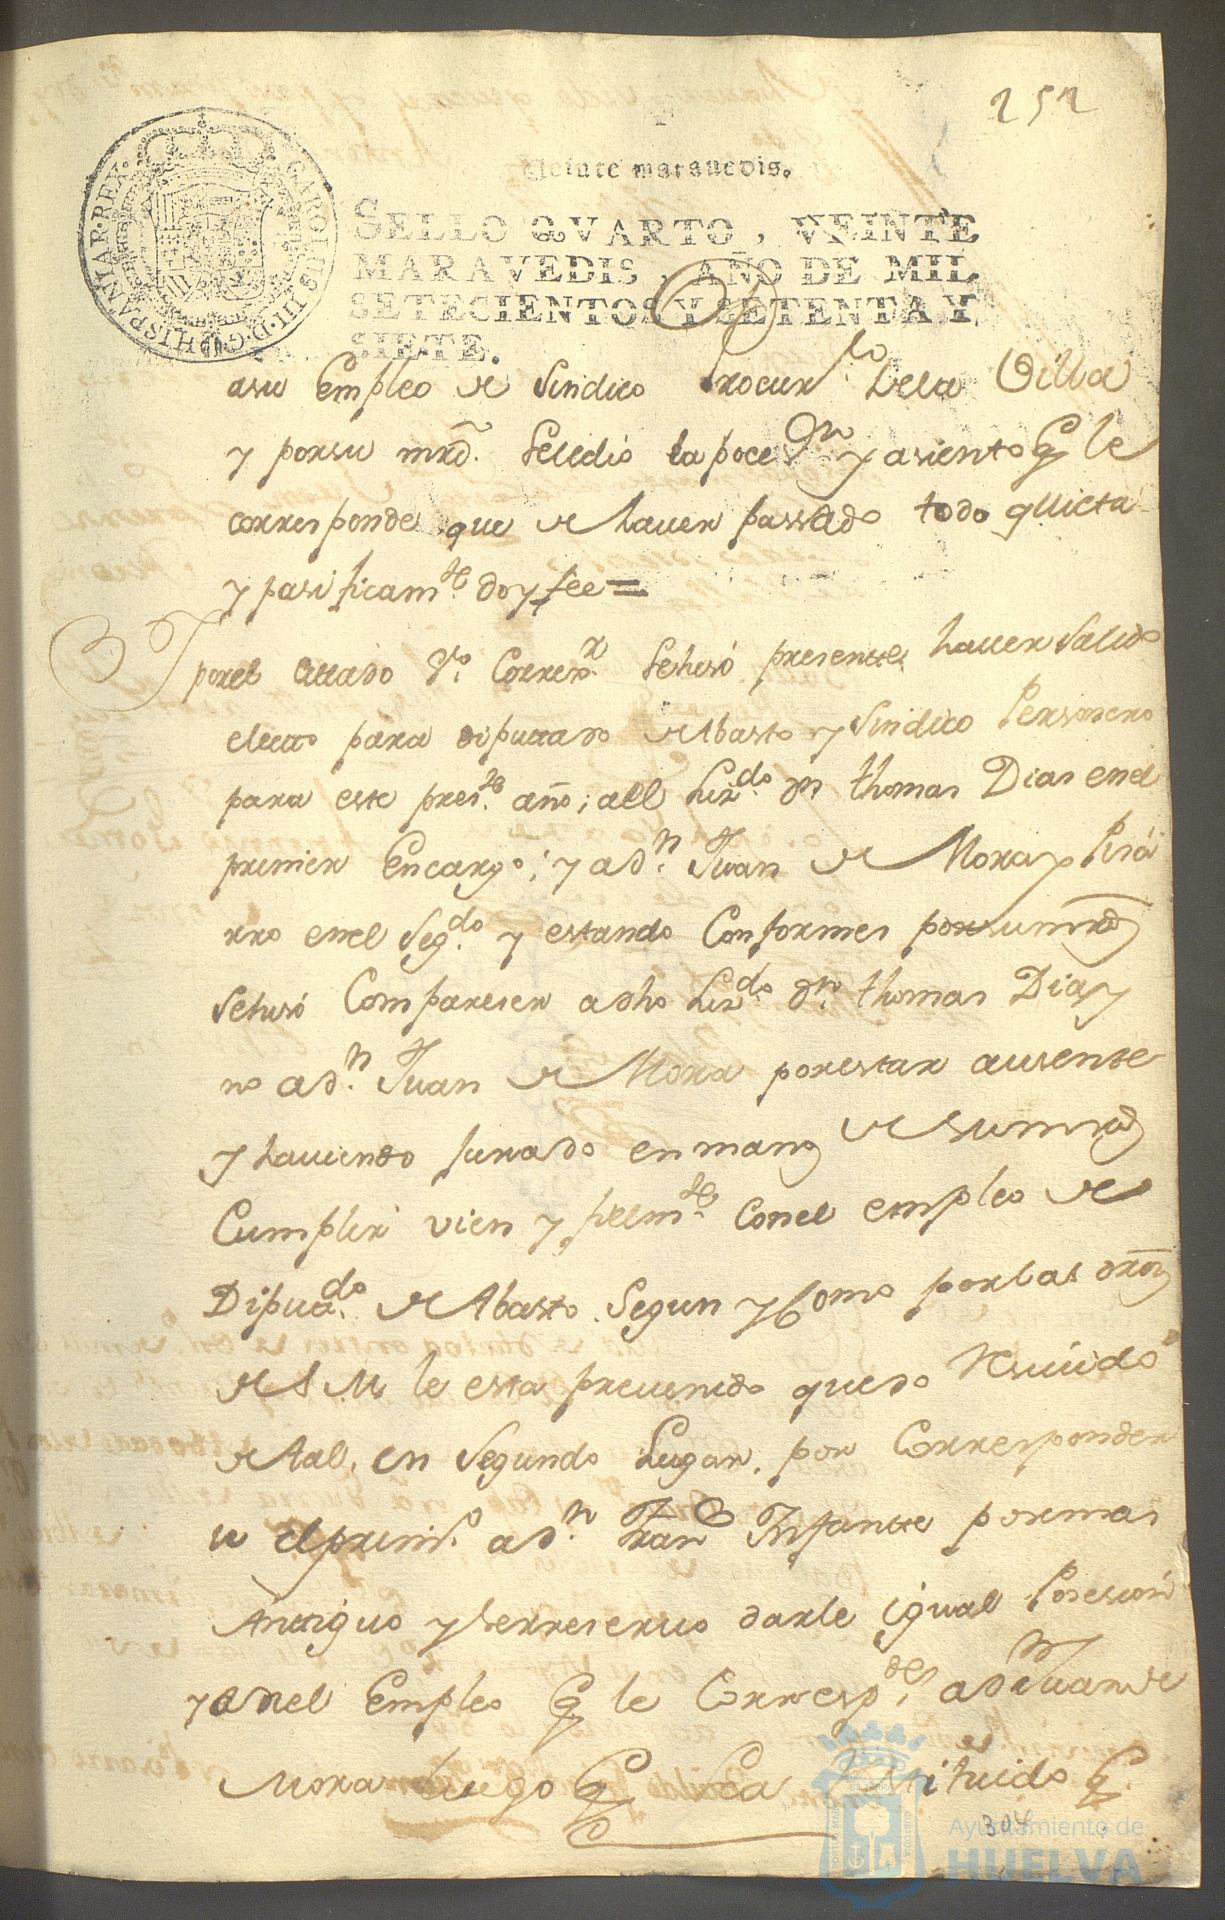 252
Veinte maravedis.
SELLO QVARTO, VEINTE
MARAVEDIS, AÑO DE MIL
SETECIENTOS Y SETENTA Y
SIETE.
CAROLUS III D G HISPANIAR REX
asu Empleo de Sindico Procur.or dela Villa
y porsu mrd. seledió la poces.on y asiento q.e le
corresponde que de haver passado todo quieta
y pasificam.te doy fee =
Y porel Cittado S.or Correx.or se hisó presente haver salido
electo para diputtado de Abasto y sindico Personero
para este pres.te año; all Liz.do D.n thomas Dias enel
primer Encargo; y a D.n Juan de Mora y Pisá
rro enel Seg.do y estando Conformes porsu mrd
se hisó Compareser a dho Liz.do D.n thomas Dias y
no a D.n Juan de Mora por estar ausente
y haviendo Jurado en mano de su mrd
Cumplir vien y fielm.te conel empleo de
Diputa.do de Abasto segun y como por las orns
de S M. le esta prevenido quedo resiuido
de tal, en segundo Lugar, por Corresponder
le el prim.o a D.n Fran.co Infante por mas
Anttiguo y se rreservo darle igual Posesion
y enel Empleo q.e le Corresp.de, a D.n Juan de
Mora luego q.e sea restituido q.e
304
Ayuntamiento de
HUELVA